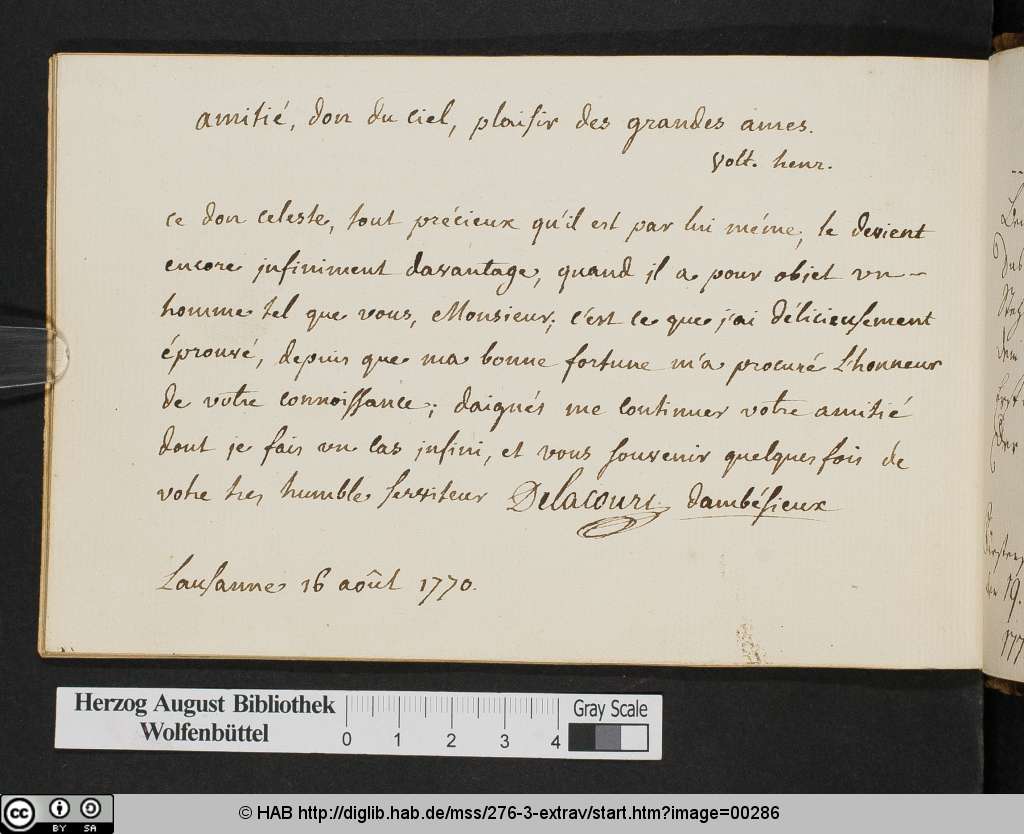 amitié, don du ciel, plaisir des grandes ames.
Volt. henr.
ce don celeste, tout précieux qu'il est par lui même, le devient
encore infiniment davantage, quand il a pour objet un
homme tel que vous, Monsieur; c'est ce que j'ai délicieusement
éprouvé, depuis que ma bonne fortune m'a procuré l'honneur
de votre connoissance; daignés me continuer votre amitié
dont je fais un cas infini, et vous souvenir quelques fois de
votre tres humble serviteur Delacour dambésieux
Lausanne 16 août 1770.
Herzog August Bibliothek
Wolfenbüttel
0 1 2 3 4
Gray Scale
cc BY SA
© HAB http://diglib.hab.de/mss/276-3-extrav/start.htm?image=00286